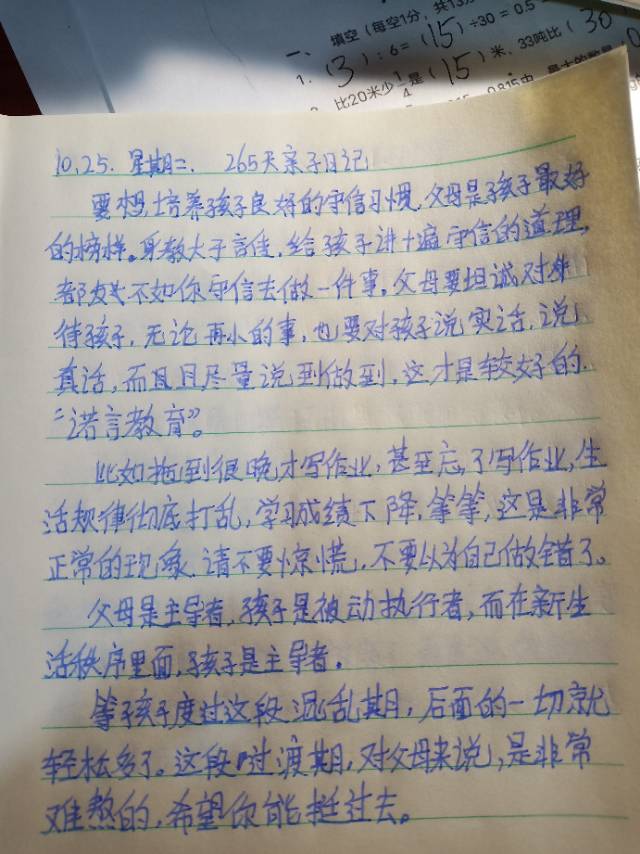 一、 填空（每空1分，共13分
1.（3）：6=（15）÷30=0.5
比20米少1/4是（15）米，33吨比（30
10.25. 星期二. 265天亲子日记
要想培养孩子良好的守信习惯,父母是孩子最好
的榜样。身教大于言传,给孩子讲十遍守信的道理,
都不如你守信去做一件事。父母要坦诚对
待孩子,无论再小的事,也要对孩子说实话,说
真话,而且且尽量说到做到,这才是较好的
“诺言教育”。
比如拖到很晚才写作业,甚至忘了写作业,生
活规律彻底打乱,学习成绩下降,等等,这是非常
正常的现象.请不要惊慌,不要以为自己做错了。
父母是主导者,孩子是被动执行者,而在新生
活秩序里面,孩子是主导者。
等孩子度过这段混乱期,后面的一切就
轻松多了。这段过渡期,对父母来说,是非常
难熬的,希望你能挺过去。